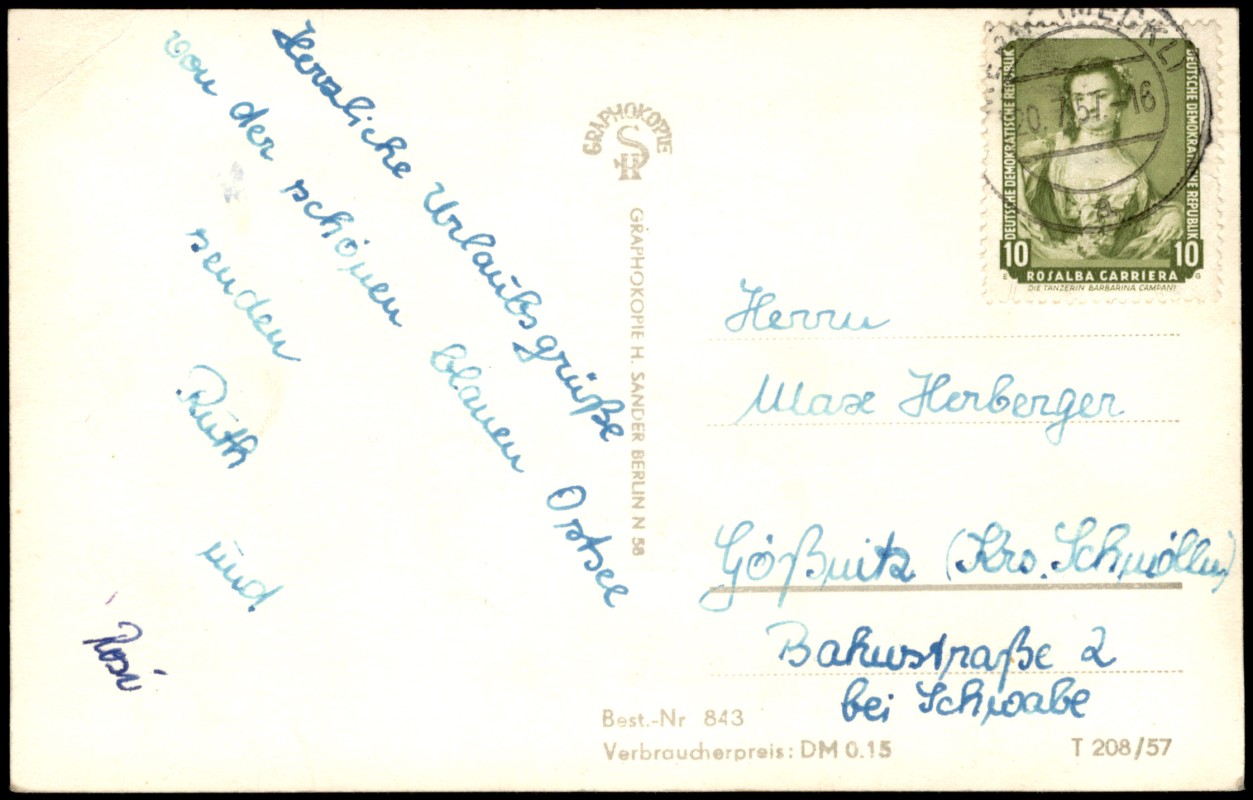 Herzliche Urlaubsgrüße
von der schönen blauen Ostsee
senden
Ruth
und
Rosi
GRAPHOKOPIE
GRAPHOKOPIE H. SANDER BERLIN N 58
(MECKL)
20.7.57.-16
a
DEUTSCHE DEMOKRATISCHE REPUBLIK
DEUTSCHE DEMOKRATISCHE REPUBLIK
10
10
ROSALBA CARRIERA
DIE TÄNZERIN BARBARINA CAMPANI
Herrn
Max Herberger
Gößnitz (Krs. Schmölln)
Bahnstraße 2
bei Schwabe
Best.-Nr 843
Verbraucherpreis: DM 0.15
T 208/57